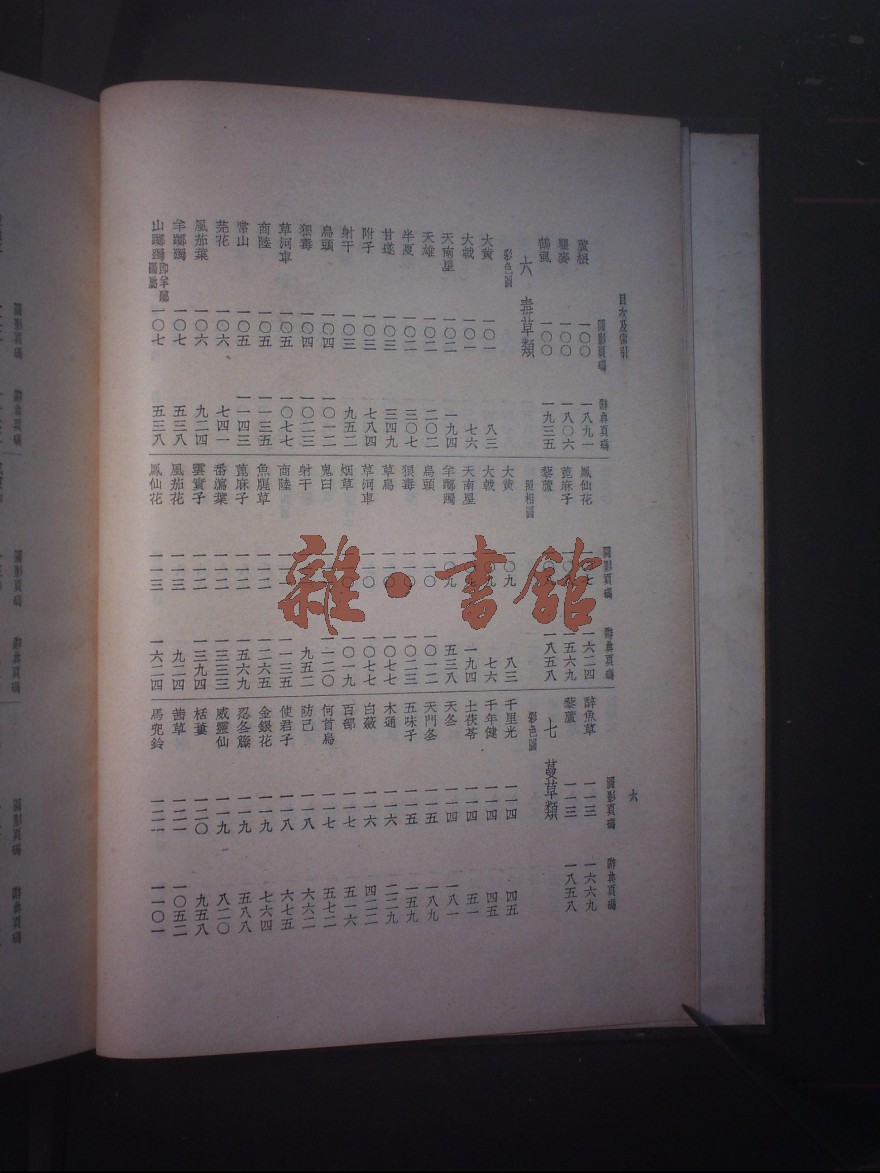 目次及索引
圖影頁碼 辭典頁碼
一〇〇 一八九一
瞿麥 一〇〇 一八〇六
鶴蝨 一〇〇 一九三五
六 毒草類
彩色圖
大黃 一〇一 八三
大戟 一〇一 七六
天南星 一〇二 一九四
天雄 一〇二 二〇二
半夏 一〇二 三〇七
甘遂 一〇三 三四九
附子 一〇三 七八四
射干 一〇三 九五二
烏頭 一〇四 一〇一二
狼毒 一〇四 一〇二三
草河車 一〇五 一〇七七
商陸 一〇五 一一三五
常山 一〇五 一一四三
芫花 一〇六 七四一
風茄葉 一〇六 九二四
羊躑躅 一〇七 五三八
山躑躅 一〇七 五三八
圖影頁碼 辭典頁碼
鳳仙花 一六二四
蓖麻子 一五六九
藜蘆 一八五八
照相圖
大黃 一〇九 八三
大戟 七六
天南星 一九四
羊躑躅 一〇九 五三八
烏頭 一一〇 一〇一二
狼毒 一一〇 一〇二三
草烏 一〇七七
草河車 一一〇 一〇七七
烟草 一〇一九
鬼臼 一一二〇
射干 九五二
商陸 一一三五
魚腥草 一一二 一二六五
蓖麻子 一一二 一五六九
番瀉葉 一一二 一三三三
雲實子 一一二 一三九四
風茄花 一一三 九二四
鳳仙花 一一三 一六二四
圖影頁碼 辭典頁碼
醉魚草 一一三 一六六九
藜蘆 一一三 一八五八
七 蔓草類
彩色圖
千里光 一一四 四五
千年健 一一四 四五
土茯苓 一一四 五一
天冬 一一四 一八一
天門冬 一一五 一八九
五味子 一一五 一五九
木通 一一六 二二九
白蘞 一一六 四二二
百部 一一七 五一六
何首烏 一一七 五七二
防己 一一八 六六二
使君子 一一八 六七五
金銀花 一一九 七六四
忍冬藤 一一九 五八八
威靈仙 一一九 八二〇
栝蔞 一二〇 九五八
茜草 一二一 一〇五二
馬兜鈴 一二一 一一〇一
六
雜·書館